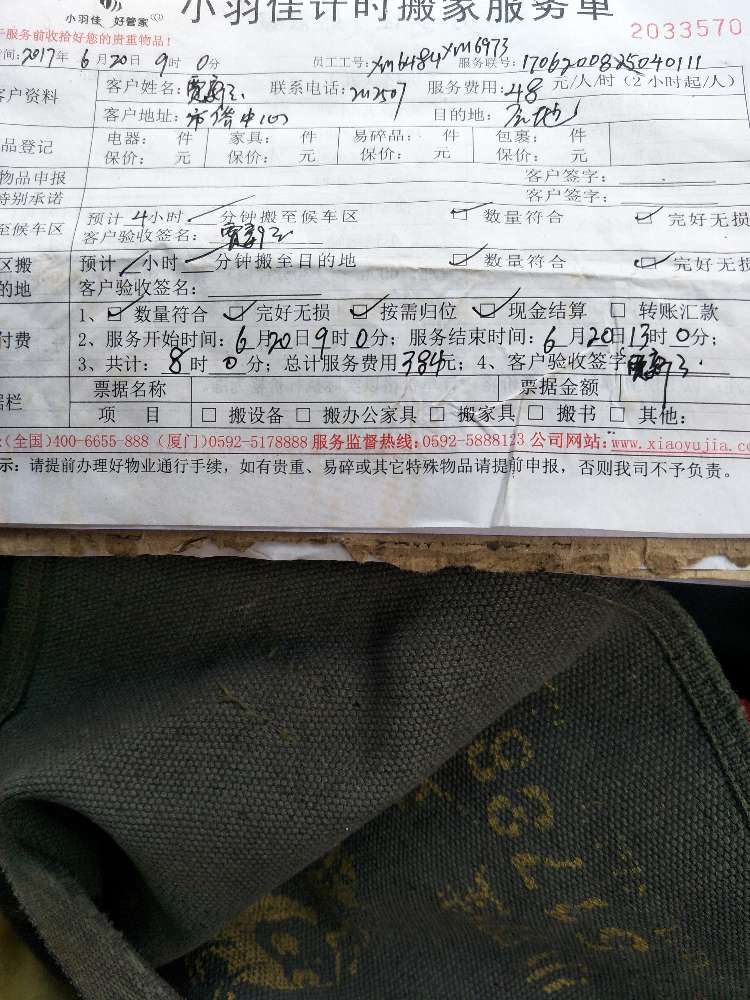 小羽佳计时搬家服务单
小羽佳 好管家
2033570
服务前收拾好您的贵重物品!
间:2017年6月20日9时0分 员工工号:XM6484 XM6973 服务联号:1706200825040111
客户资料 客户姓名: 联系电话: 服务费用:48元/人/时(2小时起/人)
客户地址: 目的地:
品登记 电器: 件 家具: 件 易碎品: 件 包裹: 件
保价: 元 保价: 元 保价: 元 保价: 元
物品申报 客户签字:
特别承诺 客户签字:
至候车区 预计4小时 分钟搬至候车区 ☑ 数量符合 ☑ 完好无损
客户验收签名:
区搬 预计 小时 分钟搬至目的地 ☑ 数量符合 ☑ 完好无损
的地 客户验收签名:
1、☑ 数量符合 ☑ 完好无损 ☑ 按需归位 ☑ 现金结算 □ 转账汇款
付费 2、服务开始时间:6月20日9时0分;服务结束时间:6月20日13时0分;
3、共计:8时0分;总计服务费用384元;4、客户验收签字
据栏 票据名称 票据金额
项 目 □ 搬设备 □ 搬办公家具 □ 搬家具 □ 搬书 □ 其他:
(全国)400-6655-888 (厦门)0592-5178888 服务监督热线:0592-5888123 公司网站:www.xiaoyujia.co
示:请提前办理好物业通行手续,如有贵重、易碎或其它特殊物品请提前申报,否则我司不予负责。